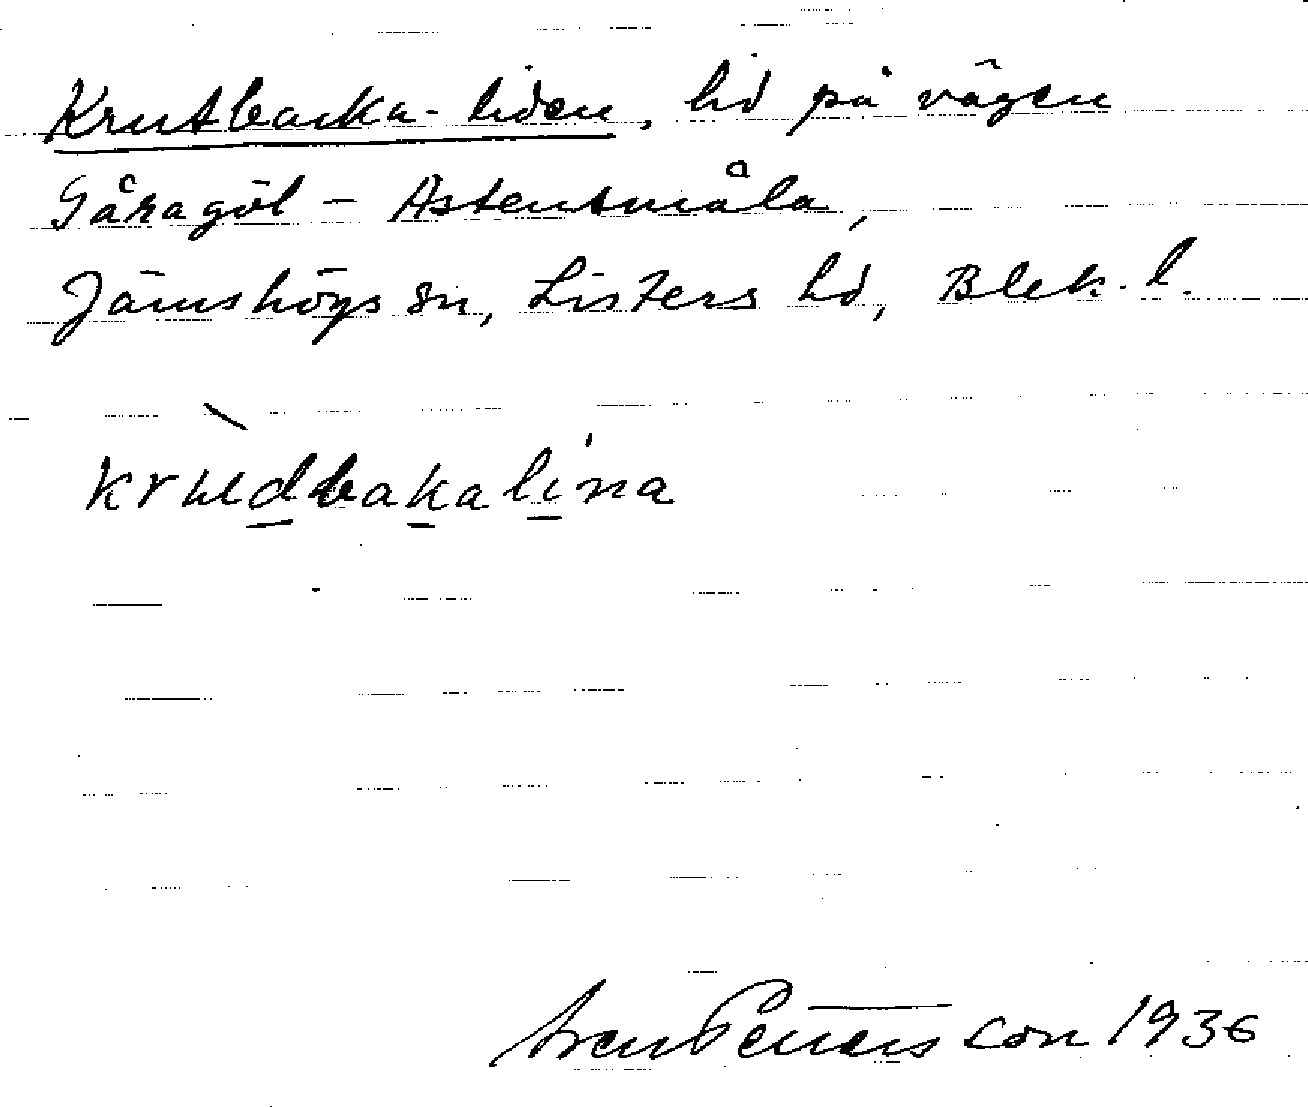 Krutbacka-liden, lid på vägen
Gåragöl - Astensmåla,
Jämshögs sn, Listers hd, Blek. l.
krudbakalina
Sven Pettersson 1936